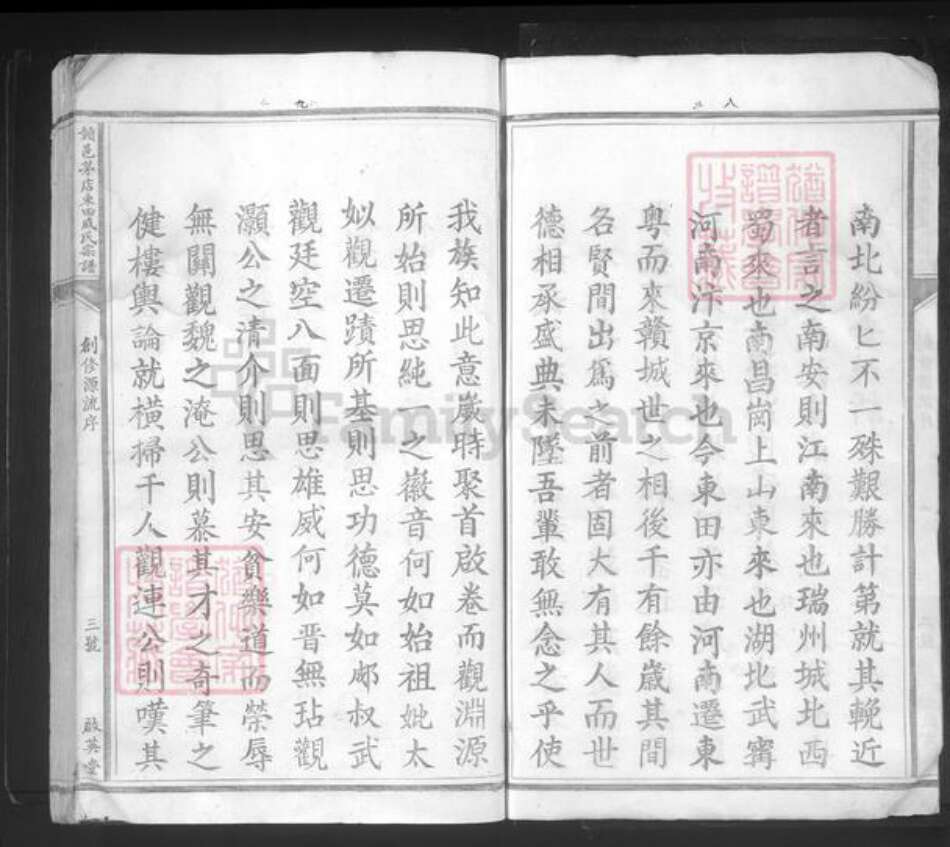 八
南北紛匕不一殊艱勝計第就其輓近
者言之南安則江南來也瑞州城北西
蜀來也南昌崗上山東來也湖北武寗
河南汴京來也今東田亦由河南遷東
粤而來贛城世之相後千有餘歲其間
各賢間出爲之前者固大有其人而世
德相承盛典未墜吾輩敢無念之乎使
九
我族知此意歲時聚首啟卷而觀淵源
所始則思純一之徽音何如始祖妣太
姒觀遷蹟所基則思功德莫如郕叔武
觀廷空八面則思雄威何如晋無玷觀
灝公之清介則思其安貧樂道而榮辱
無關觀魏之淹公則慕其才之奇筆之
健樓輿論就横掃千人觀連公則嘆其
邑茅店東田成氏宗譜
創修源流序
三號
啟英堂
FamilySearch